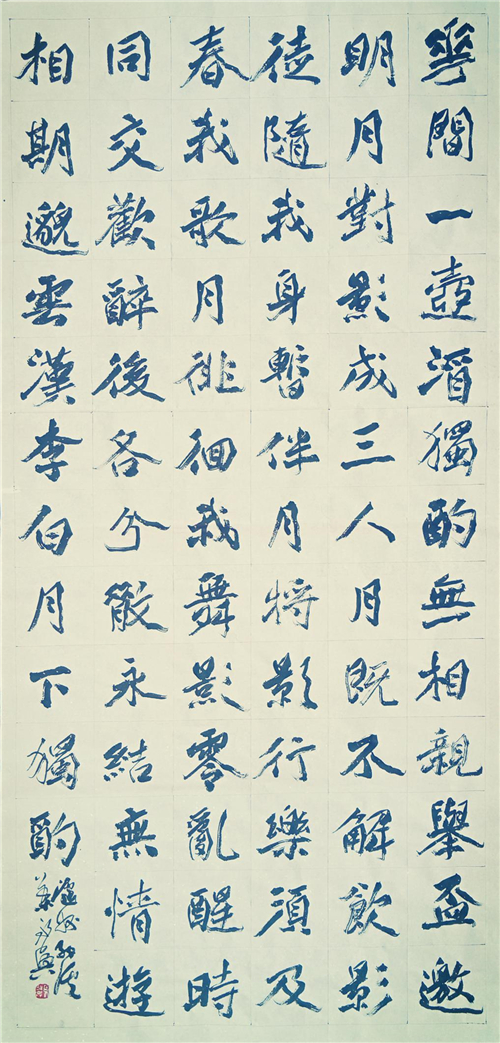 華間一壺酒獨酌無相親舉盃邀
明月對影成三人月既不解飲影
徒隨我身暫伴月將影行樂須及
春我歌月徘徊我舞影零亂醒時
同交歡醉後各分散永結無情遊
相期邈雲漢李白月下獨酌